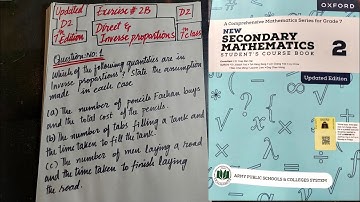 Updated
D2
7th Edition
Exercise # 2B
Direct &
Inverse proportions
D2
7th class
Question No: 1
Which of the following quantities are in
Inverse proportions? State the assumption
made in each case
(a) The number of pencils Farhan buys
and the total cost of the pencils.
(b) The number of tabs filling a tank and
the time taken to fill the tank.
(c) The number of men laying a road
and the time taken to finish laying
the road.
OXFORD
A Comprehensive Mathematics Series for Grade 7
NEW
SECONDARY
MATHEMATICS
STUDENT'S COURSE BOOK
2
Updated Edition
ARMY PUBLIC SCHOOLS & COLLEGES SYSTEM